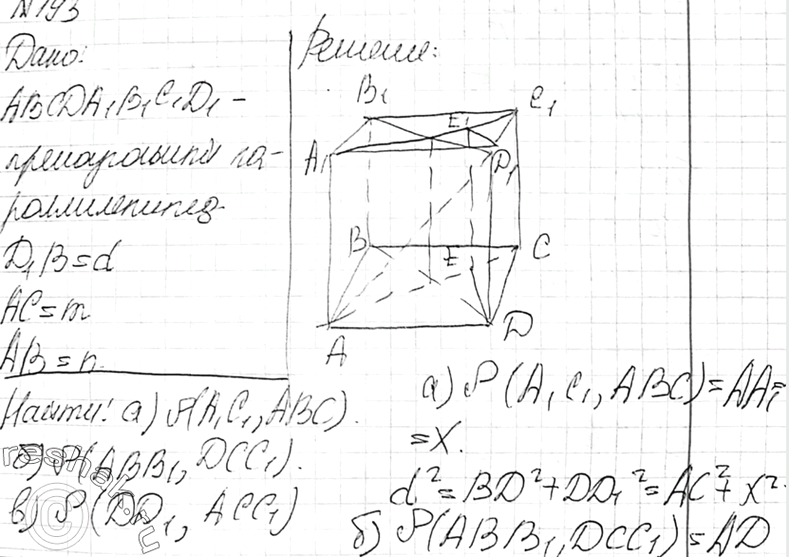 №193
Дано:
ABCDA₁B₁C₁D₁ –
прямоугольный па-
раллелепипед
D₁B = d
AC = m
AB = n.
Найти: а) ρ(A₁C₁, ABC).
б) ρ(ABB₁, DCC₁).
в) ρ(DD₁, ACC₁)
Решение:
B₁ C₁
E₁
A₁ D₁
B E C
A D
а) ρ(A₁C₁, ABC) = AA₁ =
= x.
d² = BD² + DD₁² = AC² + x²
б) ρ(ABB₁, DCC₁) = AD